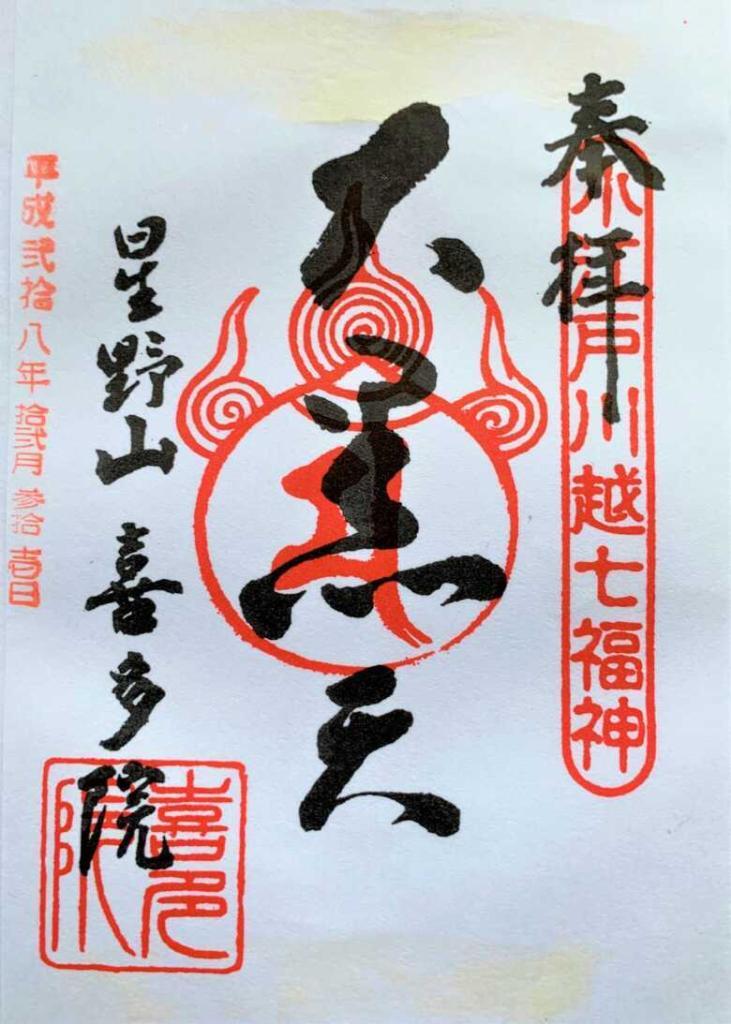 奉拝
小江戸川越七福神
大黒天
星野山 喜多院
喜多院
平成弐拾八年 拾弐月 参拾壱日